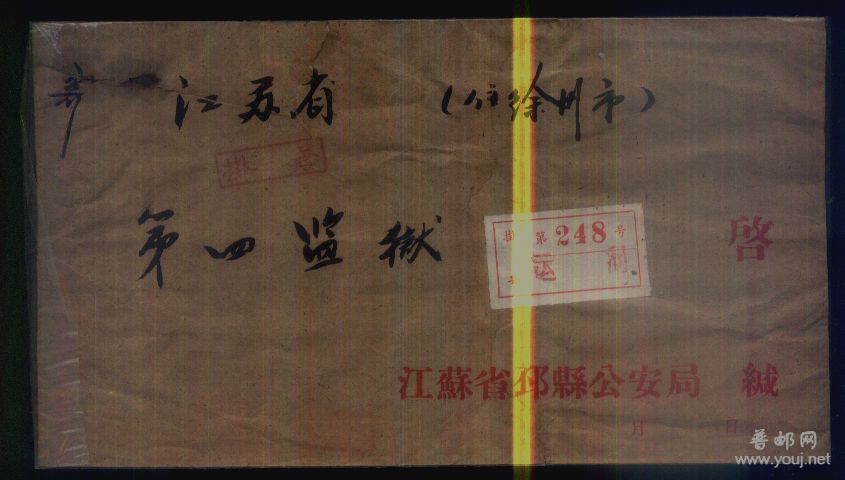 寄 江苏省 （住徐州市）
掛号
第四监獄
掛 第 248 号
号 运河
啓
江蘇省邳縣公安局 緘
月 日
普邮网
www.youj.net